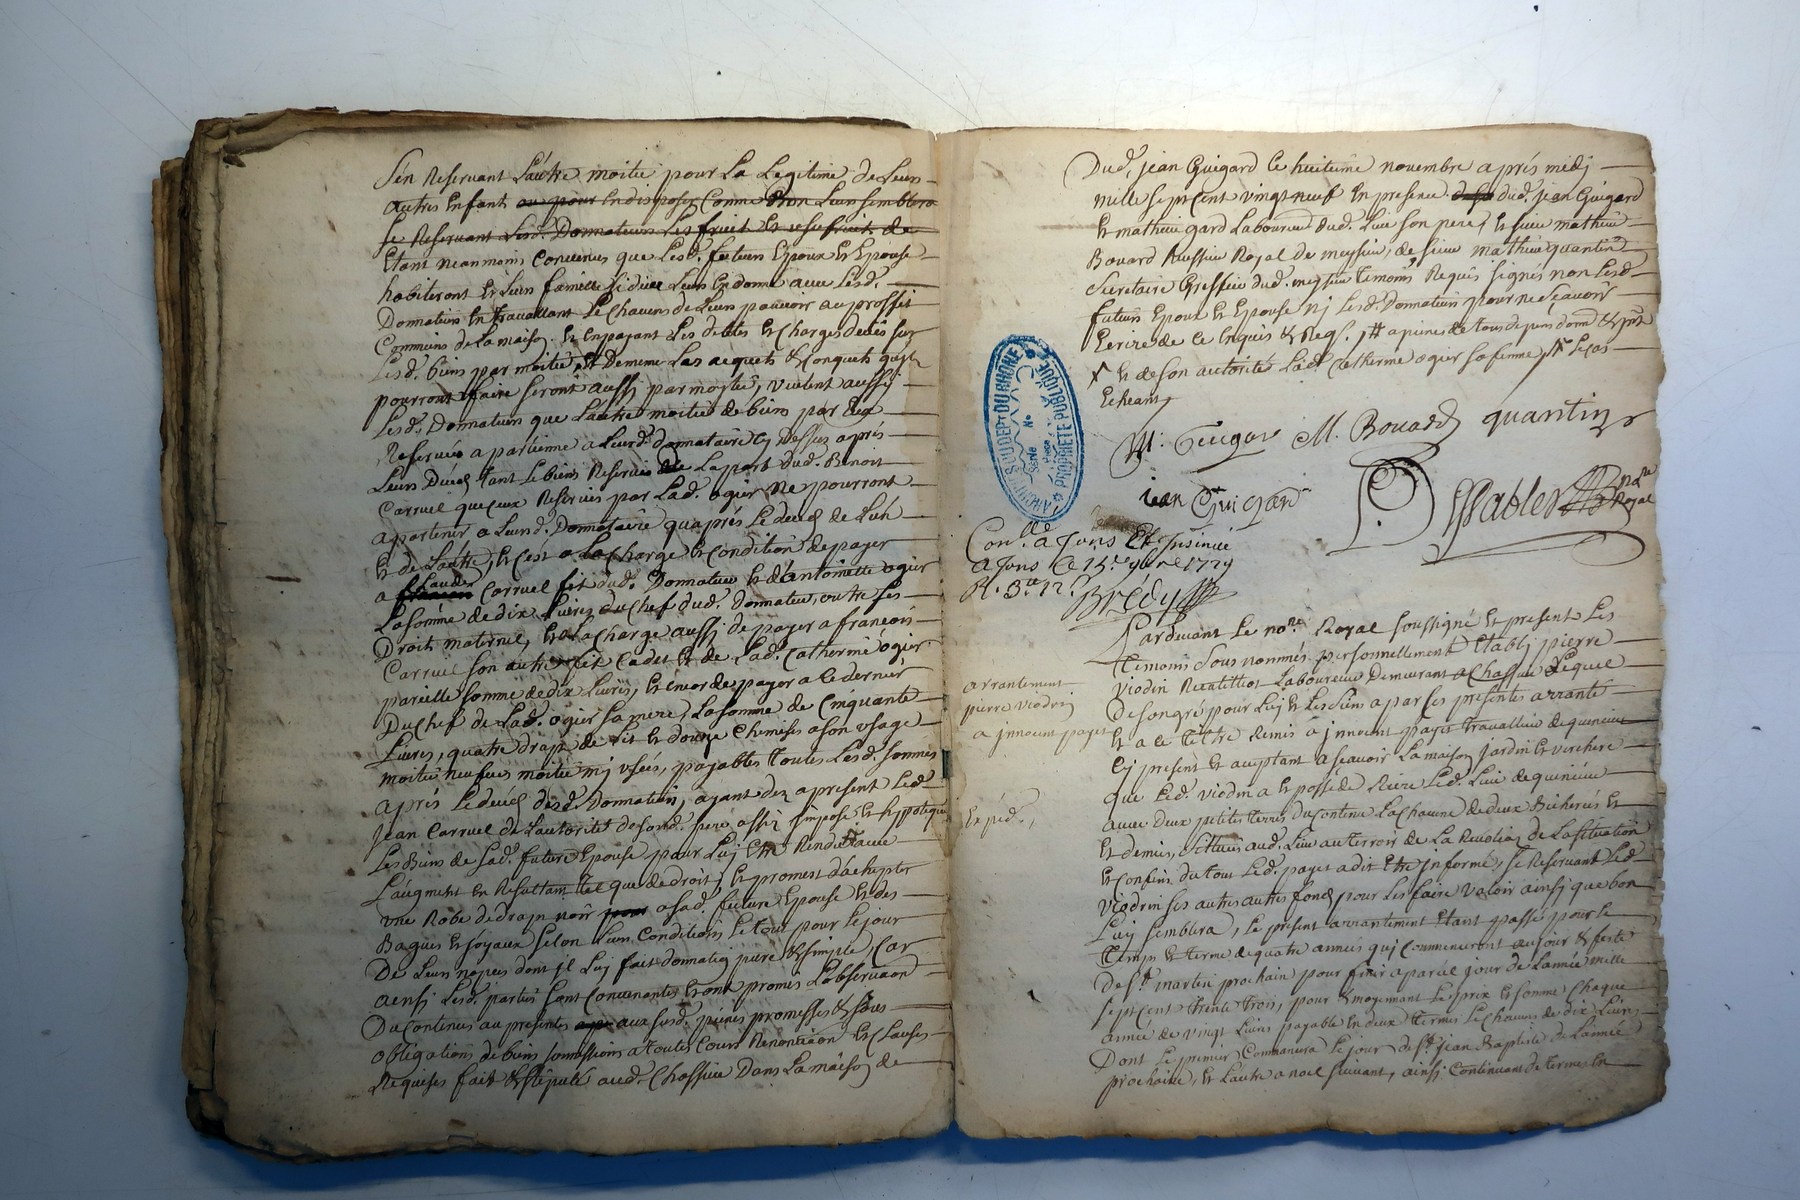 S'en Reservant L'autre moitie pour La Legitime de Leurs
autres Enfant ou pour En disposer Comme bon Leur semblera
se Reservant Lesd. Donnateurs Les fruit Et usufruit de
Etant neanmoins Convenus que Lesd. futurs Epoux Et Epouse
habiteront Et Leur famille Leurs En donne avec Lesd.
Donnateurs En travaillant Le Chacuns de Leur pouvoir au proffit
Communs de La maison Et En payant Les debtes Et Charges deües sur
Lesd. biens par moitie, Et De meme Les acquets & Conquets qu'ils
pourront faire seront aussy par moytié, veulent aussy
Lesd. Donnateurs que L'autre moitie de biens par Eux
Reservée a partienne a Leurd. donnataire Cy Dessus après
Leurs Décès tant Le biens Reservés de La part dud. Benoit
Carruel que Ceux Reservés par Lad. ogier Ne pourront
apartenir a Leurd. Donnataire qu'aprés Le decés de L'un
Et de L'autre, Et C'est a La Charge Et Condition de payer
a Claude Carruel fils dud. Donnateur Et d'antoinette ogier
La somme de dix Livres du Chef dud. donnateur, outre ses
Droit maternel, Et a La Charge aussi de payer a francois
Carruel son autre fils Cadet Et de Lad. Catherine ogier
pareille somme de dix Livres, Et Encor de payer a Ce dernier
Du Chef de Lad. ogier sa mere, La somme de Cinquante
Livres, quatre draps de Lit Et douze Chemises a son usage
moitie neufves moitie my usées, payables toutes Lesd. sommes
aprés Le decés desd. Donnateurs, ayant dez a present Led.
Jean Carruel de L'autorité de sond. pere assis imposé Et hypotequé
Les Biens de Sad. future Epouse pour Luy Etre Rendu avec
L'augment En Resultant tel que de droit, Et promest d'achepter
une Robe de drap noir pour a sad. future Epouse Et des
Bagues Et Joyaux selon Leurs Conditions Le tout pour Le jour
De Leurs nopces dont il Luy fait donnation pure & simple, Car
ainsy Lesd. parties sont Convenantes Et ont promis L'observaon
Du Contenus au presentes aux susd. peines promesses & sous
obligations de biens soumissions a toutes Cours Renonciaon Et Clauses
Requises fait & stipulé aud. Chassieu Dans La maison de
Dud. jean Guigard Ce huitieme novembre aprés midy
mille sept Cent vingt neuf En presence dud. Jean Guigard
Et mathieu gard Laboureur dud. Lieu son pere, Et sieur mathieu
Bouard huissier Royal de meyzieu, de sieur mathieu quantin
Secretaire Greffier dud. meyzieu temoins Requis signés non Lesd.
futurs Epoux Et Epouse ny Lesd. Donnateurs pour ne sçavoir
Ecrire de Ce Enquis & Reqs.
Et de son autorité Lad. Catherine ogier sa femme
Echeant
M. Guigar M. Bouard quantin
jean Guigard
Dessables nore Royal
ARCHIVES DU DEPt DU RHONE
Série No
Pièce
PROPRIÉTÉ PUBLIQUE
Conllé a Jons Et Insinué
a Jons Ce 15e 9bre 1729
Brédy
Pardevant Le nore Royal soussigné Et present Les
temoins sous nommés personnellement Etably pierre
Viodrin Laboureur Demeurant a Chassieu Lequel
De son gré pour Luy Et Les siens a par Ses presentes arranté
Et a Ce tittre Remis a jnnocent payet travailleur de quincieu
Cy present Et aceptant a scavoir La maison Jardin Et verchere
que Led. viodrin a Et posséde Riere Led. Lieu de quincieu
avec deux petittes terres du Contenu La Chacune de deux Bicherés Et
Et demie, scittuées aud. Lieu au terroir de La Revolian de La situation
Et Confins du tout Led. payet a dit Etre Informé, se Reservant Led.
viodrin ses autres autres fonds pour Les faire valoir ainsy que bon
Luy semblera, Le present arrantement Etant passé pour Le
temps Et terme de quatre années quy Commenceront au jour & feste
De st. martin prochain pour finir a pareil jour de L'année mille
sept Cent trente trois, pour & moyennant Le prix Et somme Chaque
année de vingt Livres payable En deux termes Le Chacun de dix Livres
Dont Le premier Commencera Le jour de st. Jean Baptiste de L'année
prochaine, Et L'autre a noel suivant, ainsy Continuant de termes En
arrantement
pierre viodrin
a jnnocent payet
Expéd.